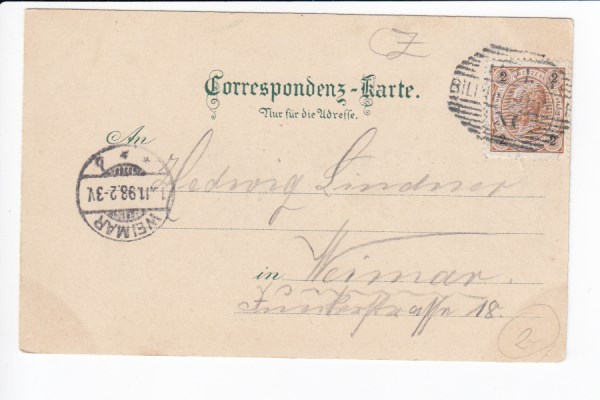 Z
Correspondenz-Karte.
Nur für die Adresse.
2 2
2
BILI
An
Hedwig Lindner
WEIMAR
11.98.2-3V.
in Weimar.
Junkerstrasse 18.
2